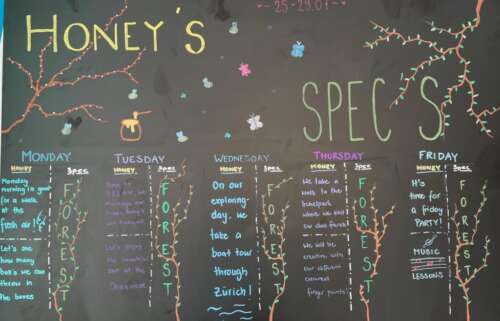 - 25-29.07 -
HONEY'S
SPEC'S
MONDAY
HONEY
Spec
Monday
morning is good
for a walk
at the
fresh air!
Let's see
how many
ball's we can
throw in
the boxes
FOREST
TUESDAY
HONEY
Spec
FOREST
WEDNESDAY
HONEY
Spec
On our
exploring-
day, we
take a
boat tour
through
Zürich!
FOREST
THURSDAY
HONEY
Spec
We take a
walk to the
where we
We will be
creative with
our different
finger points!
FOREST
FRIDAY
HONEY
Spec
It's
time for
a friday
PARTY!
MUSIC
LESSONS
FOREST